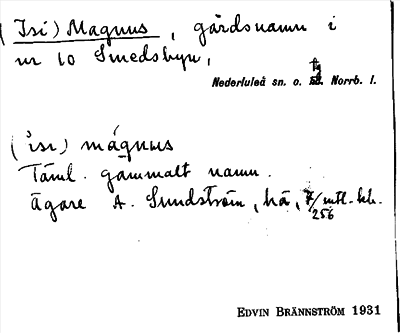 (Isi) Magnus, gårdsnamn i
nr 10 Smedsbyn,
Nederluleå sn. o. tg Norrb. l.
(ìsı) mágnus
Täml. gammalt namn.
Ägare A. Sundström, hä, 7/256 mtl. kr.
EDVIN BRÄNNSTRÖM 1931